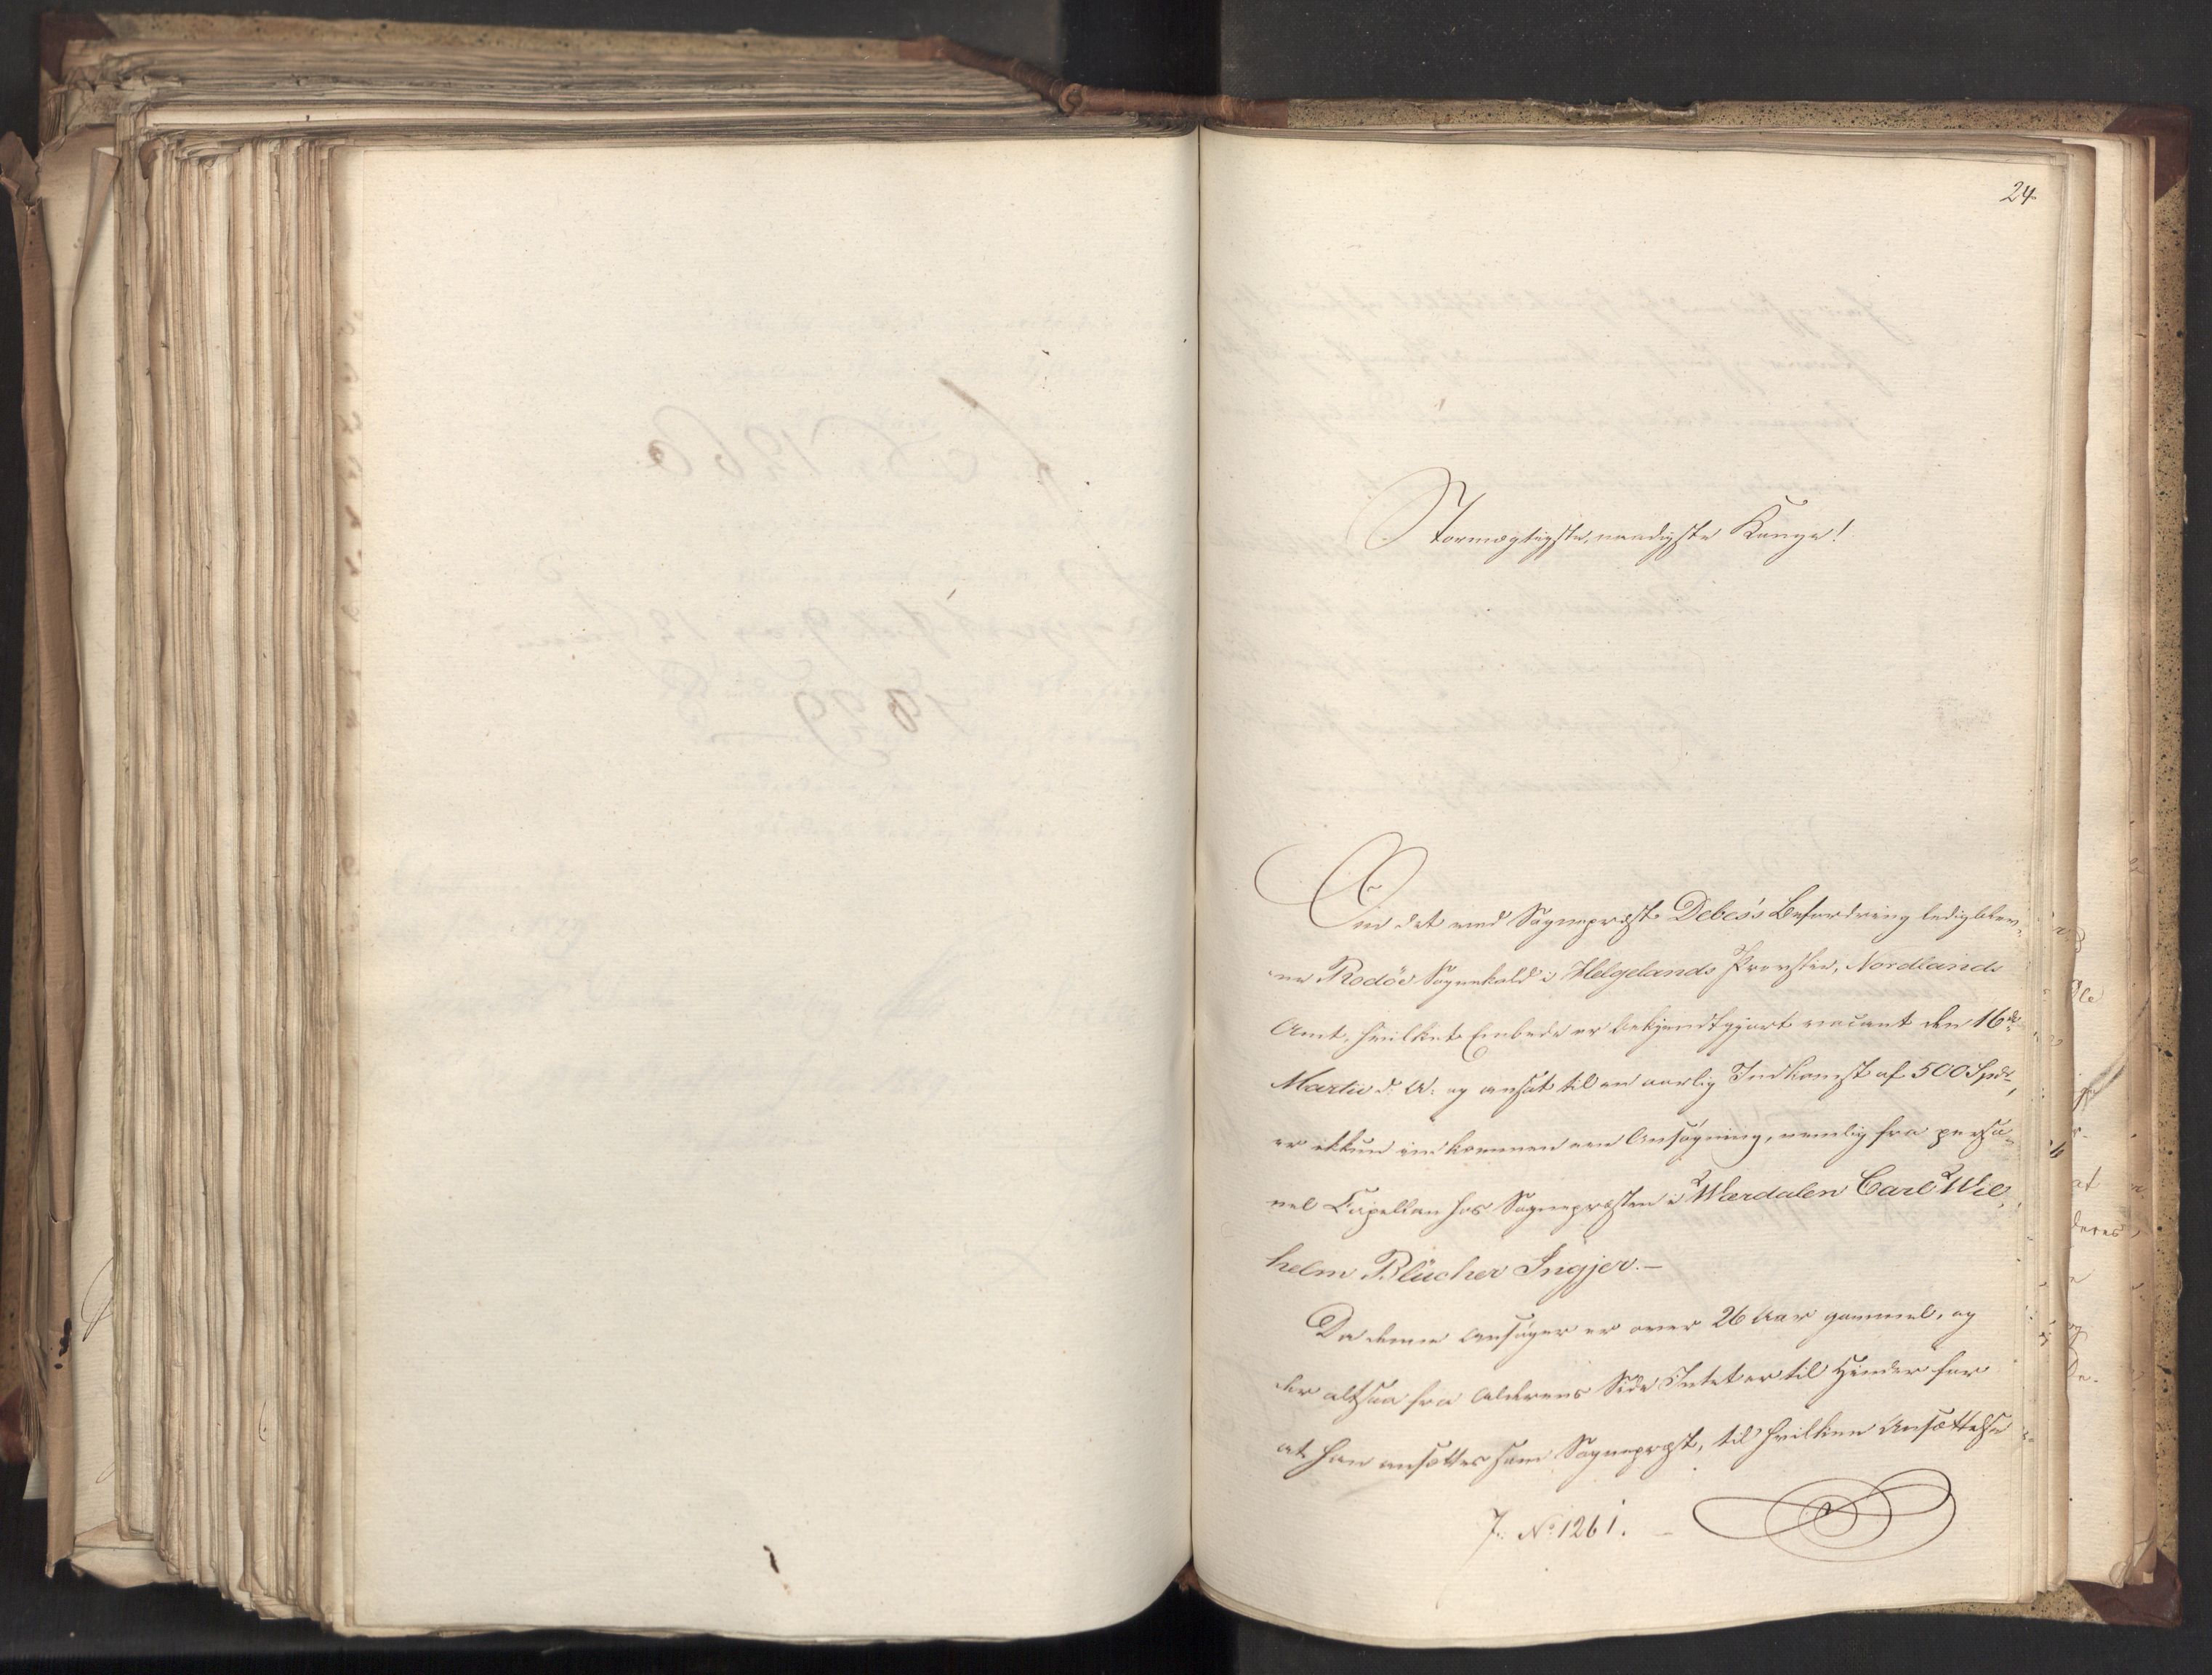 24.
Stormægtigste, naadigste Konge!
Om det ved Sognepræst Debes's Befordring ledigblev-
ne Rodöe Sognekald i Helgelands Provstie, Nordlands
Amt, hvilket Embede er bekjendtgjort vacant den 16de
Martii d. A. og ansat til en aarlig Indkomst af 500 Spdr,
er ikkun indkommen een Ansøgning, nemlig fra perso-
nel Capellan hos Sognepræsten i Wærdalen Carl Wil-
helm Blücher Ingjer.—
Da denne Ansøger er over 26 Aar gammel, og
der altsaa fra Alderens Side Intet er til Hinder for
at han ansættes som Sognepræst, til hvilken Ansættelse
J. No 1261.